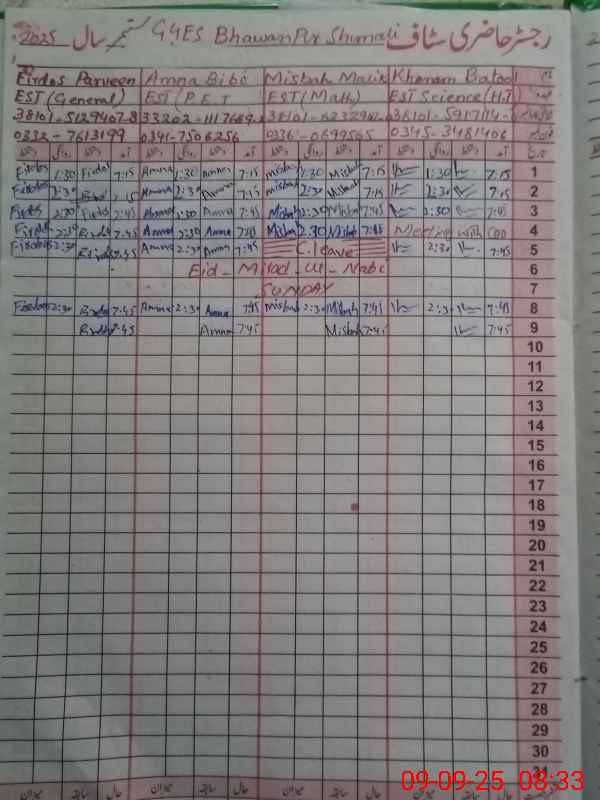 رجسٹر حاضری سٹاف G4ES Bhawan Pur Shumali ستمبر سال 2025
Firdos Parveen Amna Bibi Misbah Malik Khanam Batool نام
EST (General) EST (P.E.T EST (Math) EST Science (H.T) عہدہ
38101-5129407-8 33202-1117669- 38101- 38101-
0332-7613199 0341-7506256 0336-0699565 0345-3481406
دستخط روانگی دستخط آمد دستخط روانگی دستخط آمد دستخط روانگی دستخط آمد دستخط روانگی دستخط آمد تاریخ
Firdos 1:30 Firdos 7:15 Amna 1:30 Amna 7:15 misbah 1:30 Misbah 7:15 1:30 7:15 1
Firdos 2:30 7:15 Amna 2:30 Amna 7:15 misbah 2:30 Misbah 7:15 2:30 7:15 2
Firdos 2:30 Firdos 7:45 Amna 2:30 Amna 7:45 Misbah 2:30 Misbah 7:45 2:30 7:45 3
Firdos Firdos 7:45 Amna 2:30 Amna 7:45 Misbah 2:30 Misbah 7:45 Meeting with CEO 4
Firdos 2:30 Firdos 7:45 Amna 2:30 Amna 7:45 C.leave 2:30 7:45 5
Eid - Milad - Ul - Nabi 6
SUNDAY 7
Firdos 2:30 Firdos 7:45 Amna 2:30 Amna 7:45 misbah 2:30 Misbah 7:45 2:30 7:45 8
Firdos 7:45 Amna 7:45 Misbah 7:45 7:45 9
10
11
12
13
14
15
16
17
18
19
20
21
22
23
24
25
26
27
28
29
30
31
میزان سابقہ حال میزان سابقہ حال میزان سابقہ حال میزان سابقہ حال
09-09-25 08:33